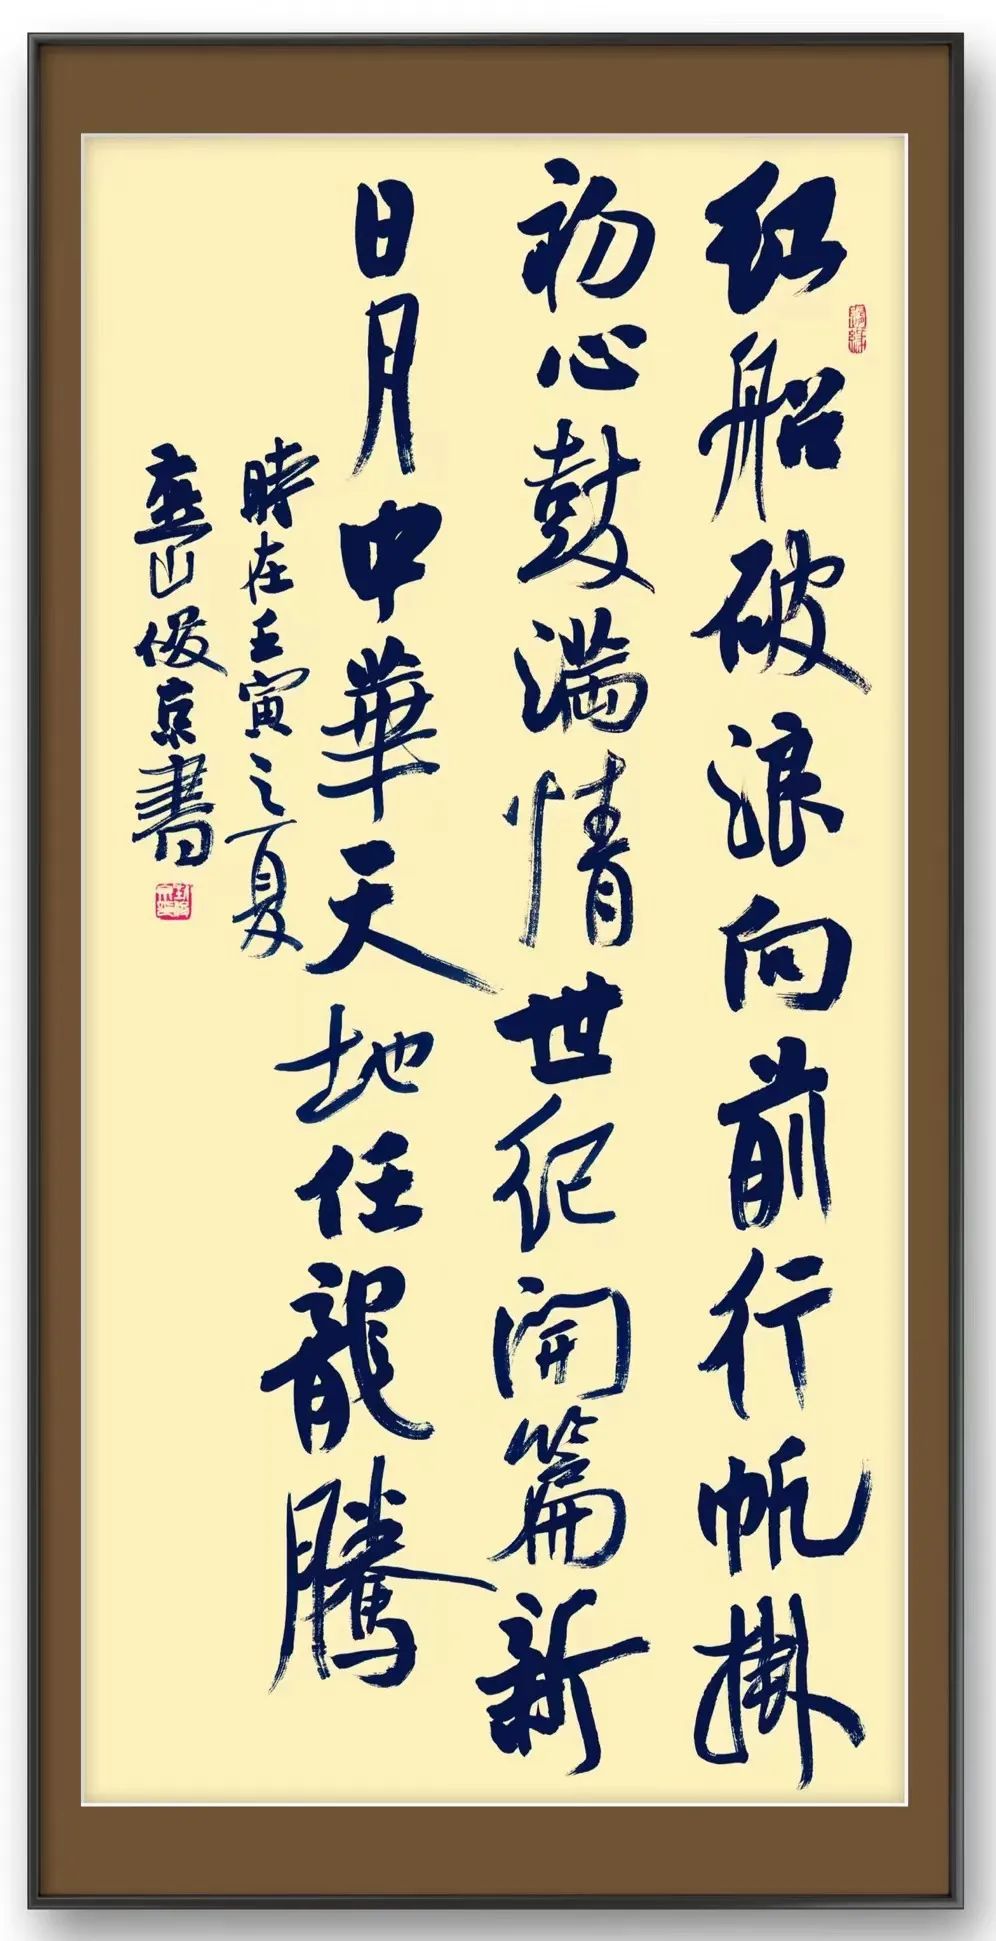 红船破浪向前行帆掛
初心鼓满情世纪開篇新
日月中華天地任龍騰
時在壬寅之夏
山俊京書